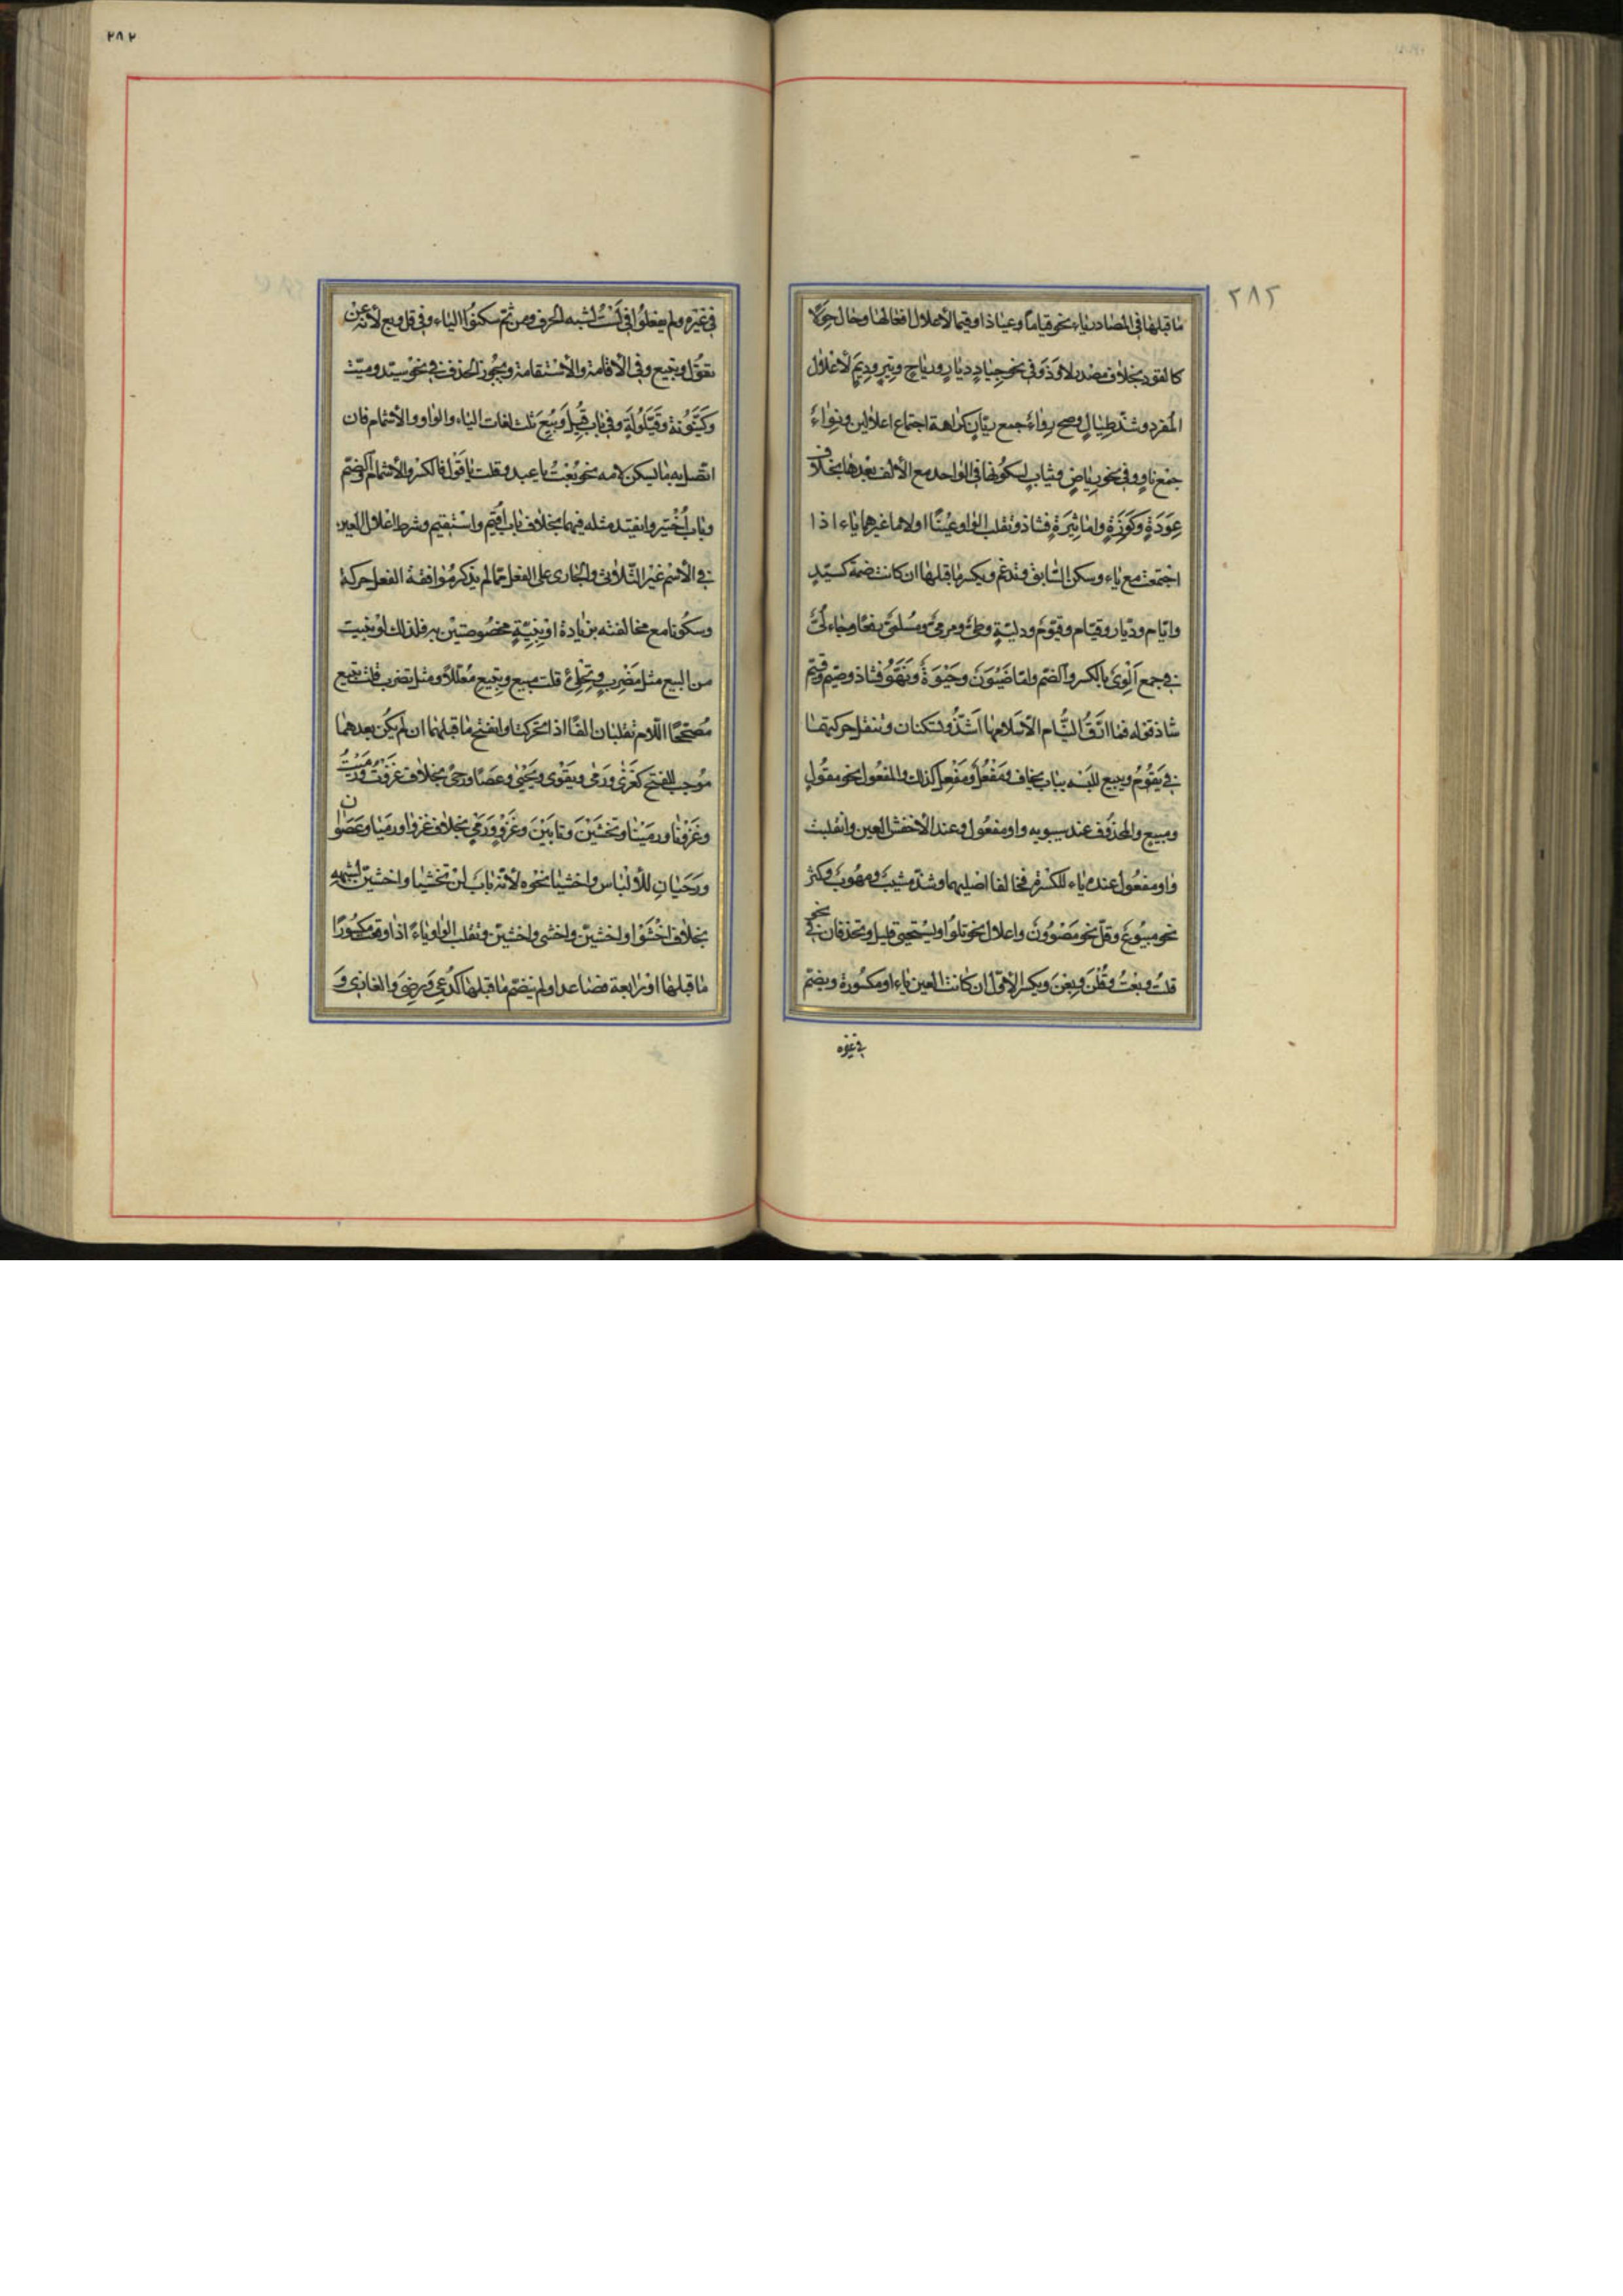 ٢٨٢
ما قبلها في المصادر ياء نحو قياما وعياذا وقيما لاعلال افعالها وحال حولا
كالقود بخلاف مصدر لاوذ وفي نحو جياد وديار ورياح وتير وديم لاعلال
المفرد وشذ طيال وصح رواء جمع ريان كراهة اجتماع اعلالين ونواء
جمع ناو وفي نحو رياض وثياب لسكونها في الواحد مع الألف بعدها بخلاف
عِوَدَةٍ وكِوَزَةٍ واما ثِيَرَةٍ فشاذ وتقلب الواو عينا او لاما او غيرهما ياء اذا
اجتمعت مع ياء وسكن السابق وتدغم ويكسر ما قبلها ان كانت ضمة كسيّد
وايّام وديّار وقيّام وقيّوم ودليّة وطيّ ومرميّ ومسلميّ رفعا وجاء لُيّ
في جمع اَلْوى بالكسر والضم واما ضَيْوَن وحَيْوَة ونَهُوّ فشاذ وصيّم وقيّم
شاذ وقوله فما ارّق النُّيّام الّا سلامها اشذّ وتسكنان وتنقل حركتهما
في يقوم ويبيع للبسه بباب يخاف ومَفْعُل ومَفْعِل كذلك والمفعول نحو مقول
ومبيع والمحذوف عند سيبويه واو مفعول وعند الاخفش العين وانقلبت
واو مفعول عنده ياء للكسرة فخالفا اصليهما وشذّ مشيب ومهوب وكثر
نحو مبيوع وقلّ نحو مصوُون واعلال نحو تلوُا ويستحيي قليل وتحذفان في نحو
قلت وبعت وقُلْنَ وبِعْنَ ويكسر الاوّل ان كانت العين ياء او مكسورة ويضمّ
في غيره
٢٨٢
في غيره ولم يفعلوا في لَسْتُ لشبه الحرف ومن ثمّ سكنوا الياء وفي قل وبع لأنه عن
تقول وتبيع وفي الاقامة والاستقامة ويجوز الحذف في نحو سيّد وميّت
وكيّنونة وقيّلولة وفي باب قيل وبيع ثلث لغات الياء والواو والاشمام فان
اتّصل به ما يسكن لامه نحو بعت يا عبد وقلت يا قول فالكسر والاشمام والضمّ
وباب اُختير وانقيد مثله فيهما بخلاف باب اُقيم واستقيم وشرط اعلال العين
في الأسم غير الثّلاثي والجاري على الفعل ممّا لم يذكر موافقة الفعل حركة
وسكونا مع مخالفته بزيادة او بنية مخصوصتين به فلذلك لو بنيت
من البيع مثل مَضْرِب وتِحْلِئ قلت مبيع وتبيع مُعَلّلا ومثل تضرب قلت تبيع
مصحّحا اللام تقلبان الفًا اذا تحركتا وانفتح ما قبلهما ان لم يكن بعدهما
موجب للفتح كغزى ورمى ويقوى ويحيى وعصًا ورحًى بخلاف غزوت ورميت
وغزونا ورمينا وتخشين وتابين وغَزْوٍ ورَمْيٍ بخلاف غزوا ورميا وعصوان
ورحيان للألباس واخشيا نحوه لأنّه باب لن تخشيا واخشينّ لشبهه
بخلاف اخشوا واخشونّ واخشي واخشينّ وتقلب الواو ياءً اذا وقعت مكسورًا
ما قبلها او رابعة فصاعدا ولم ينضمّ ما قبلها كدُعِي ورضِيَ والغازي و